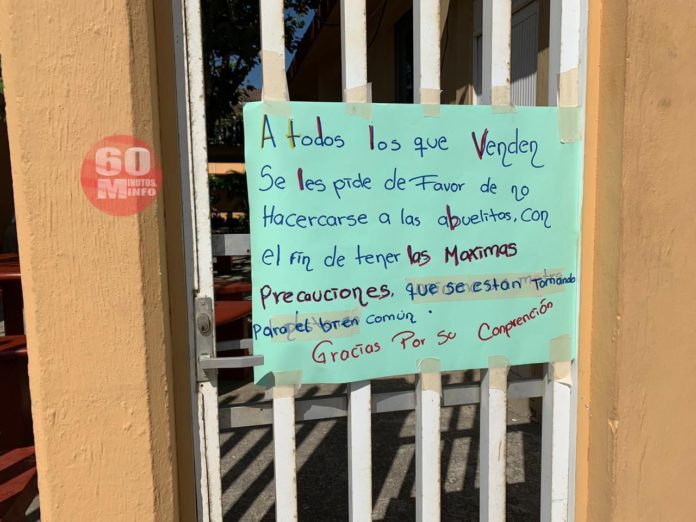 60
MINUTOS.
MINFO
A todos los que Venden
Se les pide de Favor de no
Hacercarse a las abuelitos, con
el fin de tener las Maximas
Precauciones, que se estan Tomando
para el bien común.
Gracias Por Su Conprención